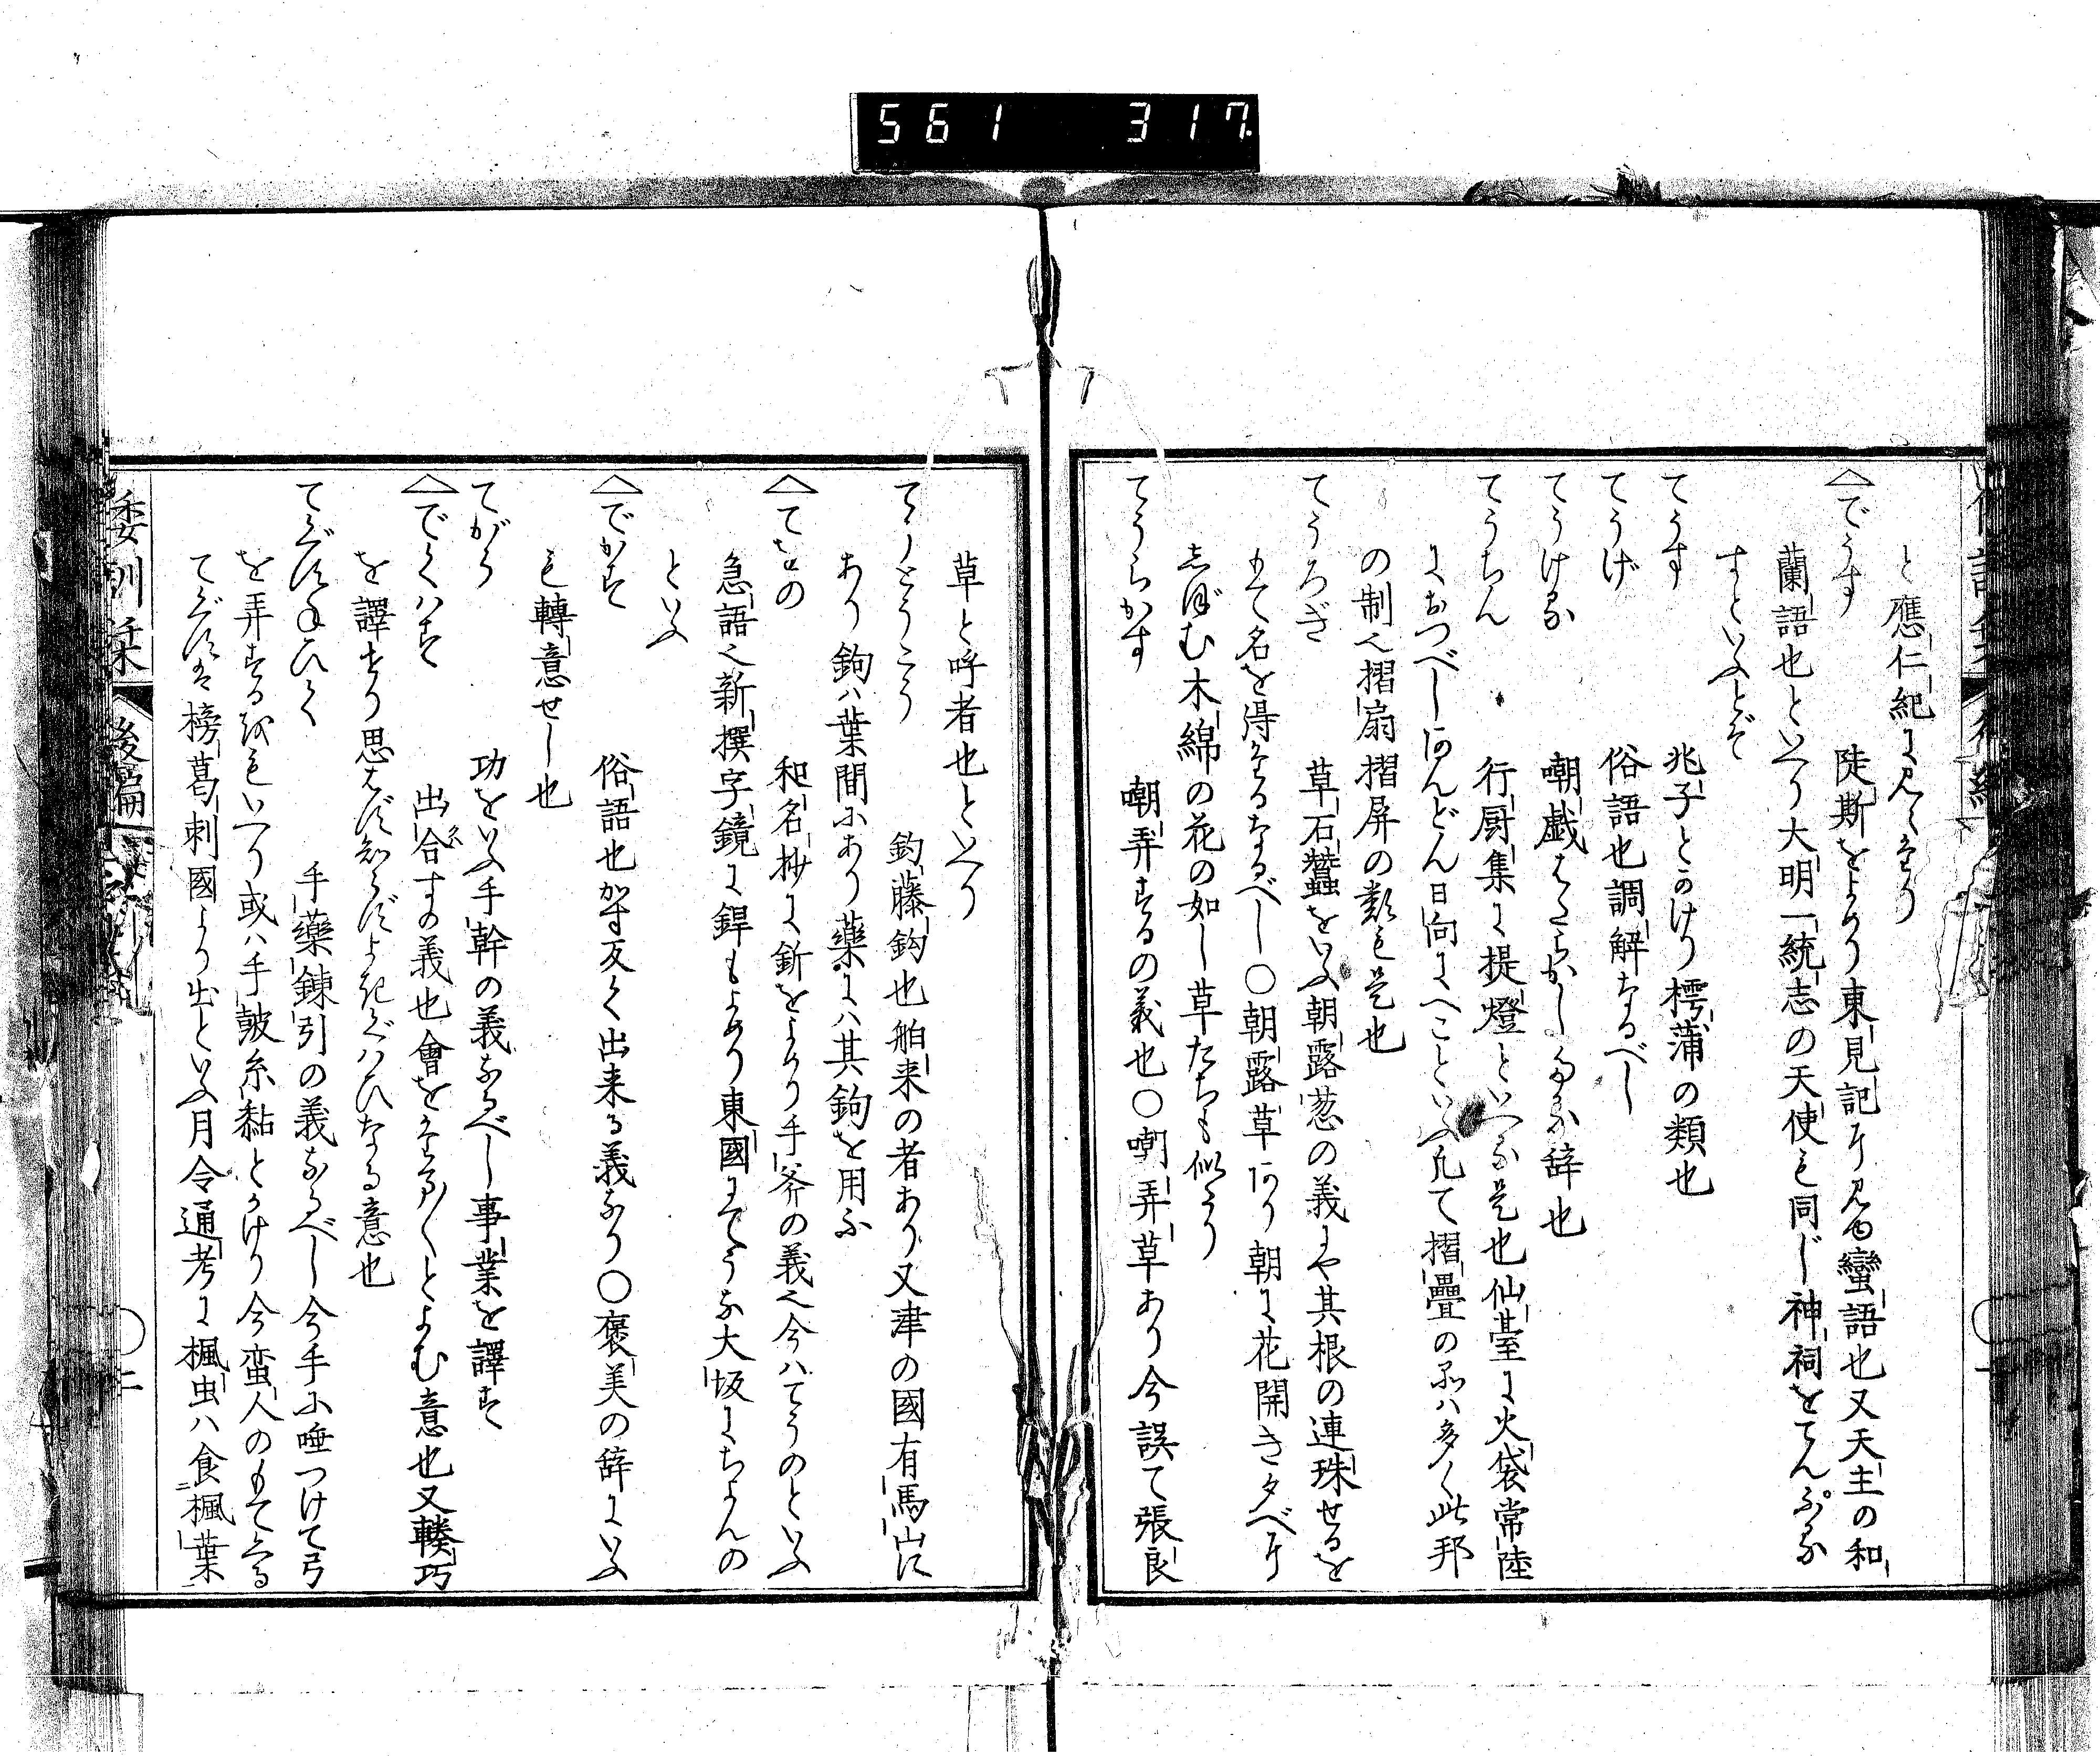 561 317
と應仁紀に見えたり
でうす 陡斯をよめり東見記に見ゆ蠻語也又天主の和
蘭語也といへり大明一統志の天使も同じ神祠をてんぷる
すといふとぞ
てうす 兆子とかけり樗蒲の類也
てうげ 俗語也調解なるべし
てうける 嘲戯をはたらかしゝ辞也
てうちん 行厨集に提燈といへる是也仙臺に火袋常陸
におつべしあんどん日向にへことといふ凡て摺疊の品ハ多く此邦
の制也摺扇摺屏の類も是也
てうろぎ 草石蠶をいふ朝露葱の義にや其根の連珠せるを
もて名を得たるなるべし〇朝露草あり朝に花開き夕べに
しぼむ木綿の花の如し草たちも似たり
てうらかす 嘲弄するの義也〇嘲弄草あり今誤て張良
草と呼者也といへり
てうとうこう 釣藤鈎也舶来の者あり又津の國有馬山に
あり鉤ハ葉間にあり藥にハ其鉤を用ふ
てをの 和名抄に釿をよめり手斧の義也今ハてうのといふ
急語也新撰字鏡に銲もよめり東國にてうな大坂にちよんの
といふ
でかす 俗語也かす反く出来る義なり〇褒美の辞にいふ
も轉意せし也
てがら 功をいふ手幹の義なるべし事業を譯す
でくハす 出合すの義也會をたまたまとよむ意也又輳巧
を譯せり思はず知らずよきぐハひなる意也
てぐすねひく 手藥錬引の義なるべし今手に唾つけて弓
を弄するをもいへり或ハ手皷糸黏とかけり今蛮人のもて来る
てぐすは榜葛剌國より出といふ月令通考に楓虫ハ食楓葉
倭訓栞 後編
二